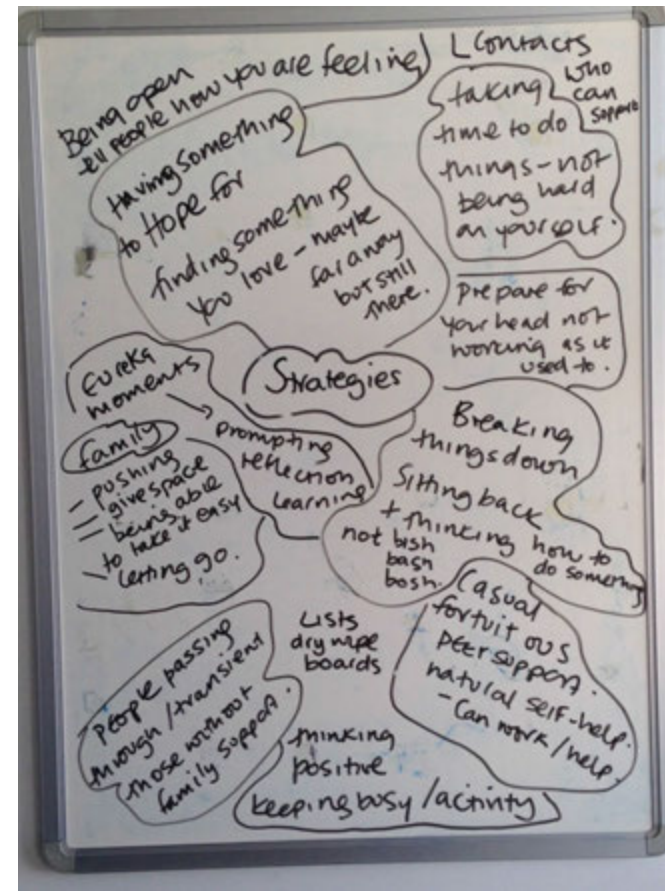 Being open
tell people how you are feeling
Contacts
who
can
support
Having something
to Hope for
finding something
you love - maybe
far away
but still
there.
taking
time to do
things - not
being hard
on yourself.
Prepare for
your head not
working as it
used to.
Strategies
Eureka
moments
prompting
reflection
learning
family
- pushing
- give space
- being able
to take it easy
- letting go.
Breaking
things down
Sitting back
+ thinking how to
do something
not bish
bash
bosh.
Casual
fortuitous
peer support.
natural self-help.
- Can work/help.
Lists
dry wipe
boards
people passing
through/transient
those without
family support.
thinking
positive
keeping busy/activity